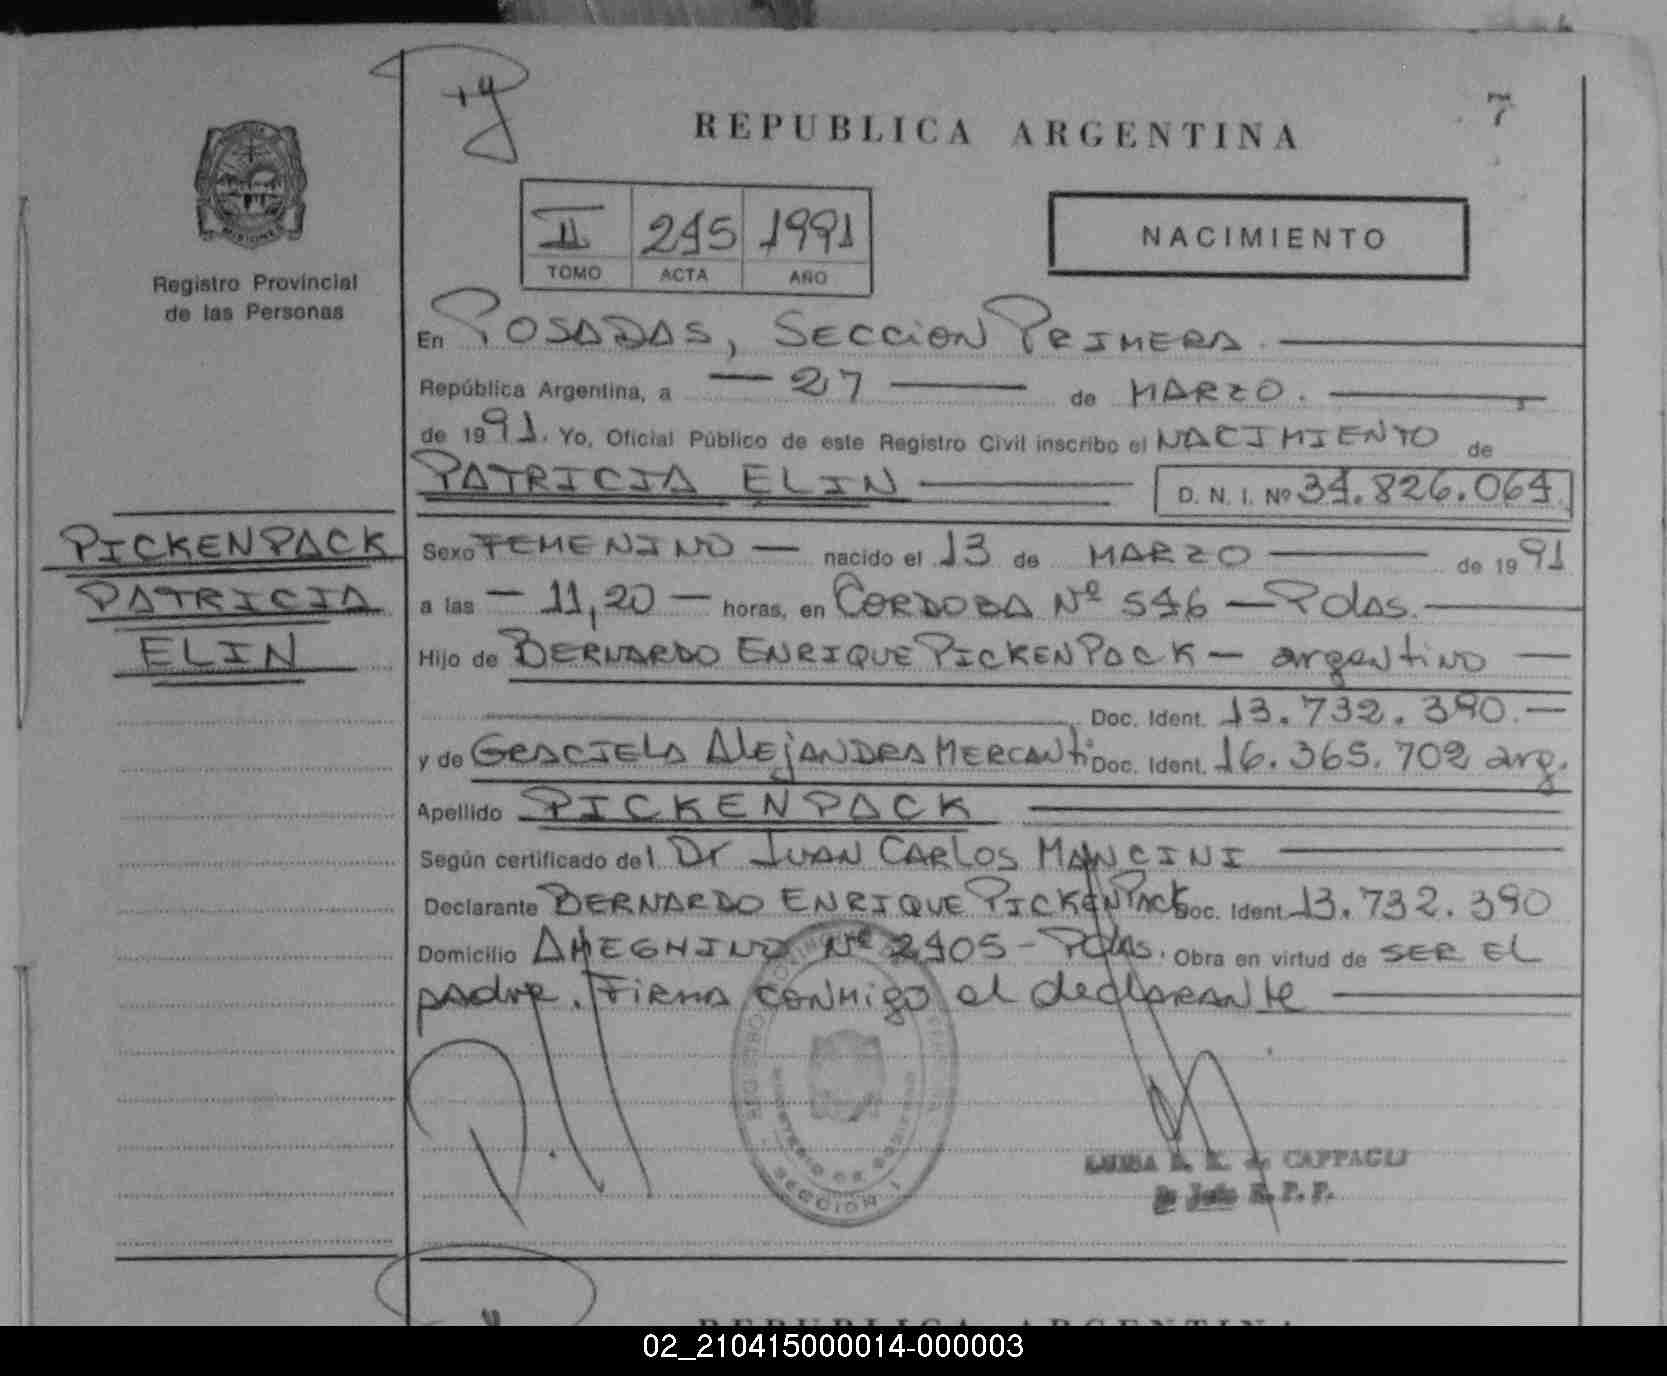 REPUBLICA ARGENTINA
7
MISIONES
Registro Provincial
de las Personas
II 245 1991
TOMO ACTA AÑO
NACIMIENTO
En POSADAS, SECCION PRIMERA.
República Argentina, a — 27 — de MARZO.
de 1991. Yo, Oficial Público de este Registro Civil inscribo el NACIMIENTO de
PATRICIA ELIN — D. N. I. Nº 34.826.064
PICKENPACK
PATRICIA
ELIN
Sexo FEMENINO — nacido el 13 de MARZO — de 1991
a las — 11,20 — horas, en CORDOBA Nº 546 — Pdas.
Hijo de BERNARDO ENRIQUE PICKENPACK — argentino —
Doc. Ident. 13.732.390.—
y de GRACIELA ALEjANDRA MERCANti Doc. Ident. 16.365.702 arg.
Apellido PICKENPACK
Según certificado del Dr JUAN CARLOS MANCINI
Declarante BERNARDO ENRIQUE PICKENPACK Doc. Ident. 13.732.390
Domicilio AMEGHINO Nº 2405 - Pdas. Obra en virtud de SER EL
padre. FIRMA CONMigo el declARANte
SECCION 1
CAPPAGLI
2º Jefe R. P. P.
REPUBLICA ARGENTINA
02_210415000014-000003